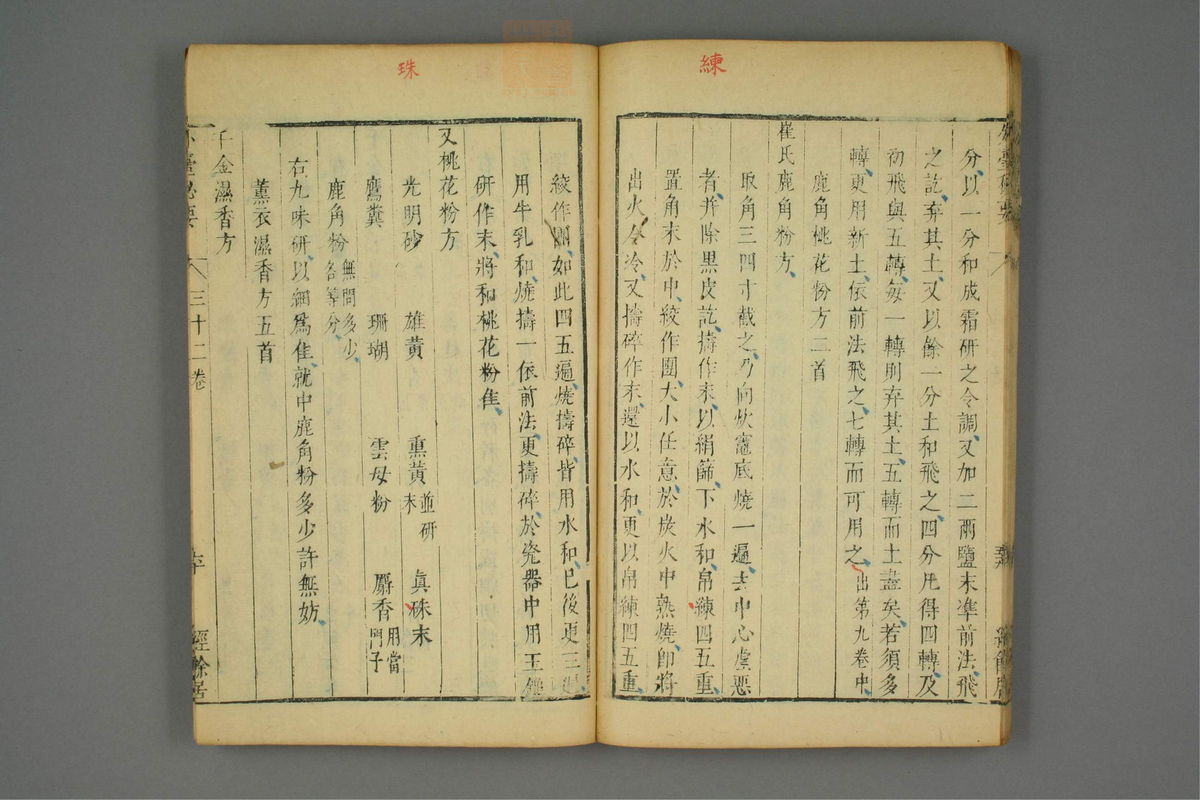 練
分以一分和成霜研之令調又加二兩鹽末準前法飛
之訖弃其土又以餘一分土和飛之四分凡得四轉及
初飛與五轉每一轉則弃其土五轉而土盡矣若須多
轉更用新土依前法飛之七轉而可用之出第九卷中
鹿角桃花粉方二首
崔氏鹿角粉方
取角三四寸截之乃向炊竈底燒一遍去中心虛惡
者并除黑皮訖擣作末以絹篩下水和帛練四五重
置角末於中絞作團大小任意於炭火中熟燒即將
出火令冷又擣碎作末還以水和更以帛練四五重
珠
絞作團如此四五遍燒擣碎皆用水和已後更三遍
用牛乳和燒擣一依前法更擣碎於瓷器中用玉鎚
研作末將和桃花粉佳
又桃花粉方
光明砂 雄黃 熏黃並研末 真硃末
鷹糞 珊瑚 雲母粉 麝香用當門子
鹿角粉無問多少各等分
右九味研以細爲佳就中鹿角粉多少許無妨
薰衣濕香方五首
千金濕香方
外臺秘要 三十二卷 經餘居